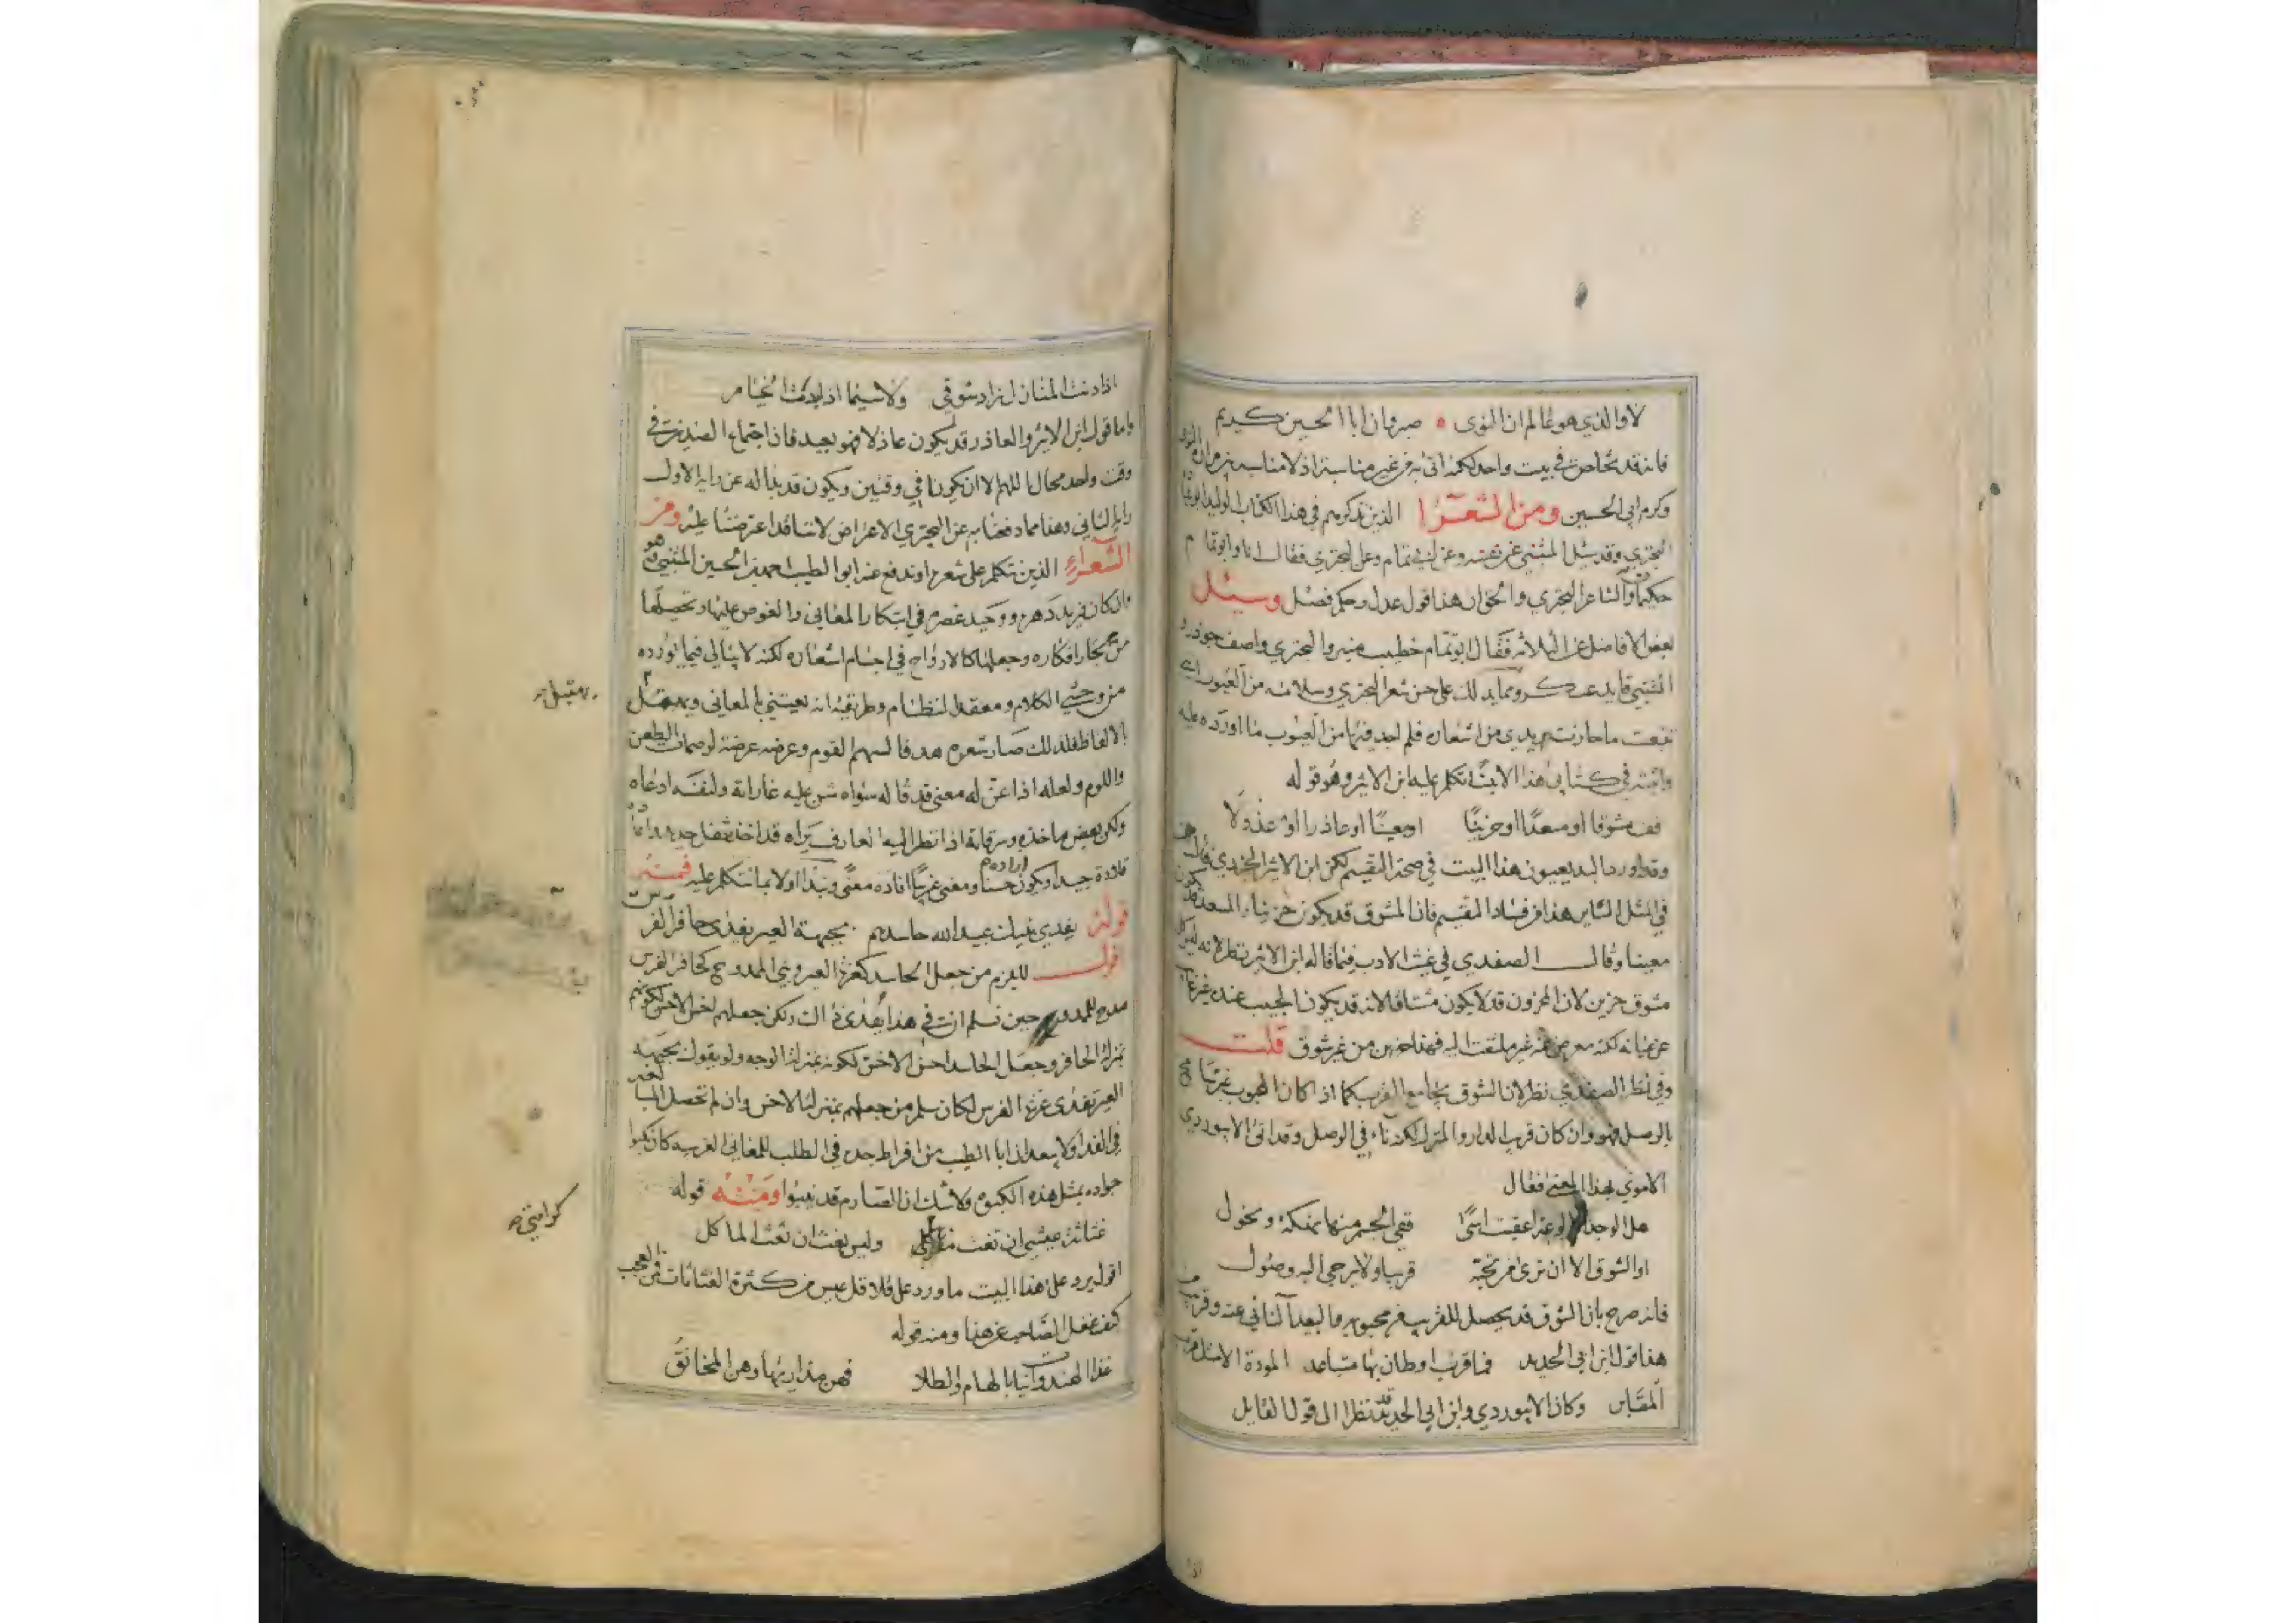 لا والذي هو عالم ان النوى صبر وان ابا الحسين كريم
فانه قد تخلص في بيت واحد لكنه اتى به من غير مناسبة اذ لا مناسبة بين مرارة النوى
وكرم ابي الحسين ومن الشعرا الذين نذكرهم في هذا الكتاب الوليد ابو عبادة
البحتري وقد سئل المتنبي عن نفسه وعن ابي تمام وعن البحتري فقال انا وابو تمام
حكيمان والشاعر البحتري والحق ان هذا قول عدل وحكم فصل وسئل
بعض الافاضل عن الثلاثة فقال ابو تمام خطيب منبر والبحتري واصف جوذر و
المتنبي قايد عسكر ومما يدلك على حسن شعر البحتري وسلامته من العيوب اني
تتبعت ما حازت يدي من اشعاره فلم اجد فيها من العيوب ما اورده عليه
واثبته في كتابي هذا الا بيتا تكلم عليه ابن الاثير وهو قوله
قف مشوقا او مسعدا او حزينا او معينا او عاذرا او عذولا
وقد اورد ما البديعيون هذا البيت في صحة التقسيم لكن ابن الاثير الجزري قال
في المثل الساير هذا من فساد التقسيم فان المشوق قد يكون حزينا والمسعد قد يكون
معينا وقال الصفدي في غيث الادب فيما قاله ابن الاثير نظر لانه ليس كل
مشوق حزين لان المحزون قد لا يكون مشتاقا لانه قد يكون الحبيب عنده غير غايب
عن عيانه لكنه معرض عنه غير ملتفت اليه فهذا حزين من غير شوق قلت
وفي نظر الصفدي نظر لان الشوق يجامع القرب كما اذا كان المحبوب
بالوصل فهو وان كان قريب الدار والمنزل لكنه ناء في الوصل وقد اتى الابيوردي
الاموي بهذا المعنى فقال
هل الوجد الا لوعة اعقبت اسى ففي الجسم منها نهكة ونحول
او الشوق الا ان ترى من تحبه قريبا ولا يرجى اليه وصول
فانه صرح بان الشوق قد يحصل للقريب من محبوبه والبعيد النائي عنه وقريب من
هذا قول ابن ابي الحديد فما قرب اوطان بها متباعد المودة الا مثل قرب
المقابر وكان الابيوردي وابن ابي الحديد قد نظرا الى قول القايل
اذا دنت المنازل زاد شوقي ولا سيما اذا بدت الخيام
واما قول ابن الاثير والعاذر قد يكون عاذلا فهو بعيد فان اجتماع الضدين في
وقت واحد محال اللهم الا ان يكونا في وقتين ويكون قد بدا له عن رايه الاول
راي الثاني وهذا مما دفعنا به عن البحتري الاعتراض لا انا قد اعترضنا عليه ومن
الشعراء الذين نتكلم على شعره او ندفع عنه ابو الطيب احمد بن الحسين المتنبي فهو
وان كان فريد دهره ووحيد عصره في ابتكار المعاني والغوص عليها وتحصيلها
من بحار افكاره وجعلها كالارواح في اجسام اشعاره لكنه لا يبالي فيما يورده
من وحشي الكلام ومعقد النظام وطريقته انه يعتني بالمعاني ويهمل
الالفاظ فلذلك صار شعره هدفا لسهام القوم وعرضه عرضة لوصمات الطعن
واللوم ولعله اذا عن له معنى قد قاله سواه شن عليه غاراته ولنفسه ادعاه
ولكن بعض ما اخذه وسرقاته اذا نظر اليه العارف يراه قد اخذ
ايراده حسنا ومعنى غريبا افاده معنى ونبدا اولا بما نتكلم عليه فمنه
قوله يفدي بنيك عبيد الله حاسدهم بجبهة العير يفدى حافر الفرس
اقول للزم من جعل الحاسد كغرة العير وبني الممدوح كحافر الفرس
مدح للممدوح حين نسلم انه في هذا يفدى ذاك ولكن جعلهم اخس الاخس لكونهم
بمنزلة الحافر وجعل الحاسد احسن الاخس لكونه بمنزلة الوجه ولو يقول بجبهة
العير يفدى غرة الفرس لكان سلم من جعلهم بمنزلة الاخس وان لم تحصل المبالغة
في الفدا ولا يبعد ان ابا الطيب من افراط جده في الطلب للمعاني الغريبة كان كبوا
جواده بمثل هذه الكبوة ولا شك ان الصارم قد ينبوا ومنه قوله
غثاثة عيشي ان تغث كرامتي وليس بغث ان تغث الماكل
اقول يرد على هذا البيت ما ورد على قلاقل عيس من كثرة الغثاثات فمن العجب
كيف غفل الصاحب عن هذا ومنه قوله
غذا الهندوانيات بالهام والطلا فهن مداريها وهن المخانق
كرامتي